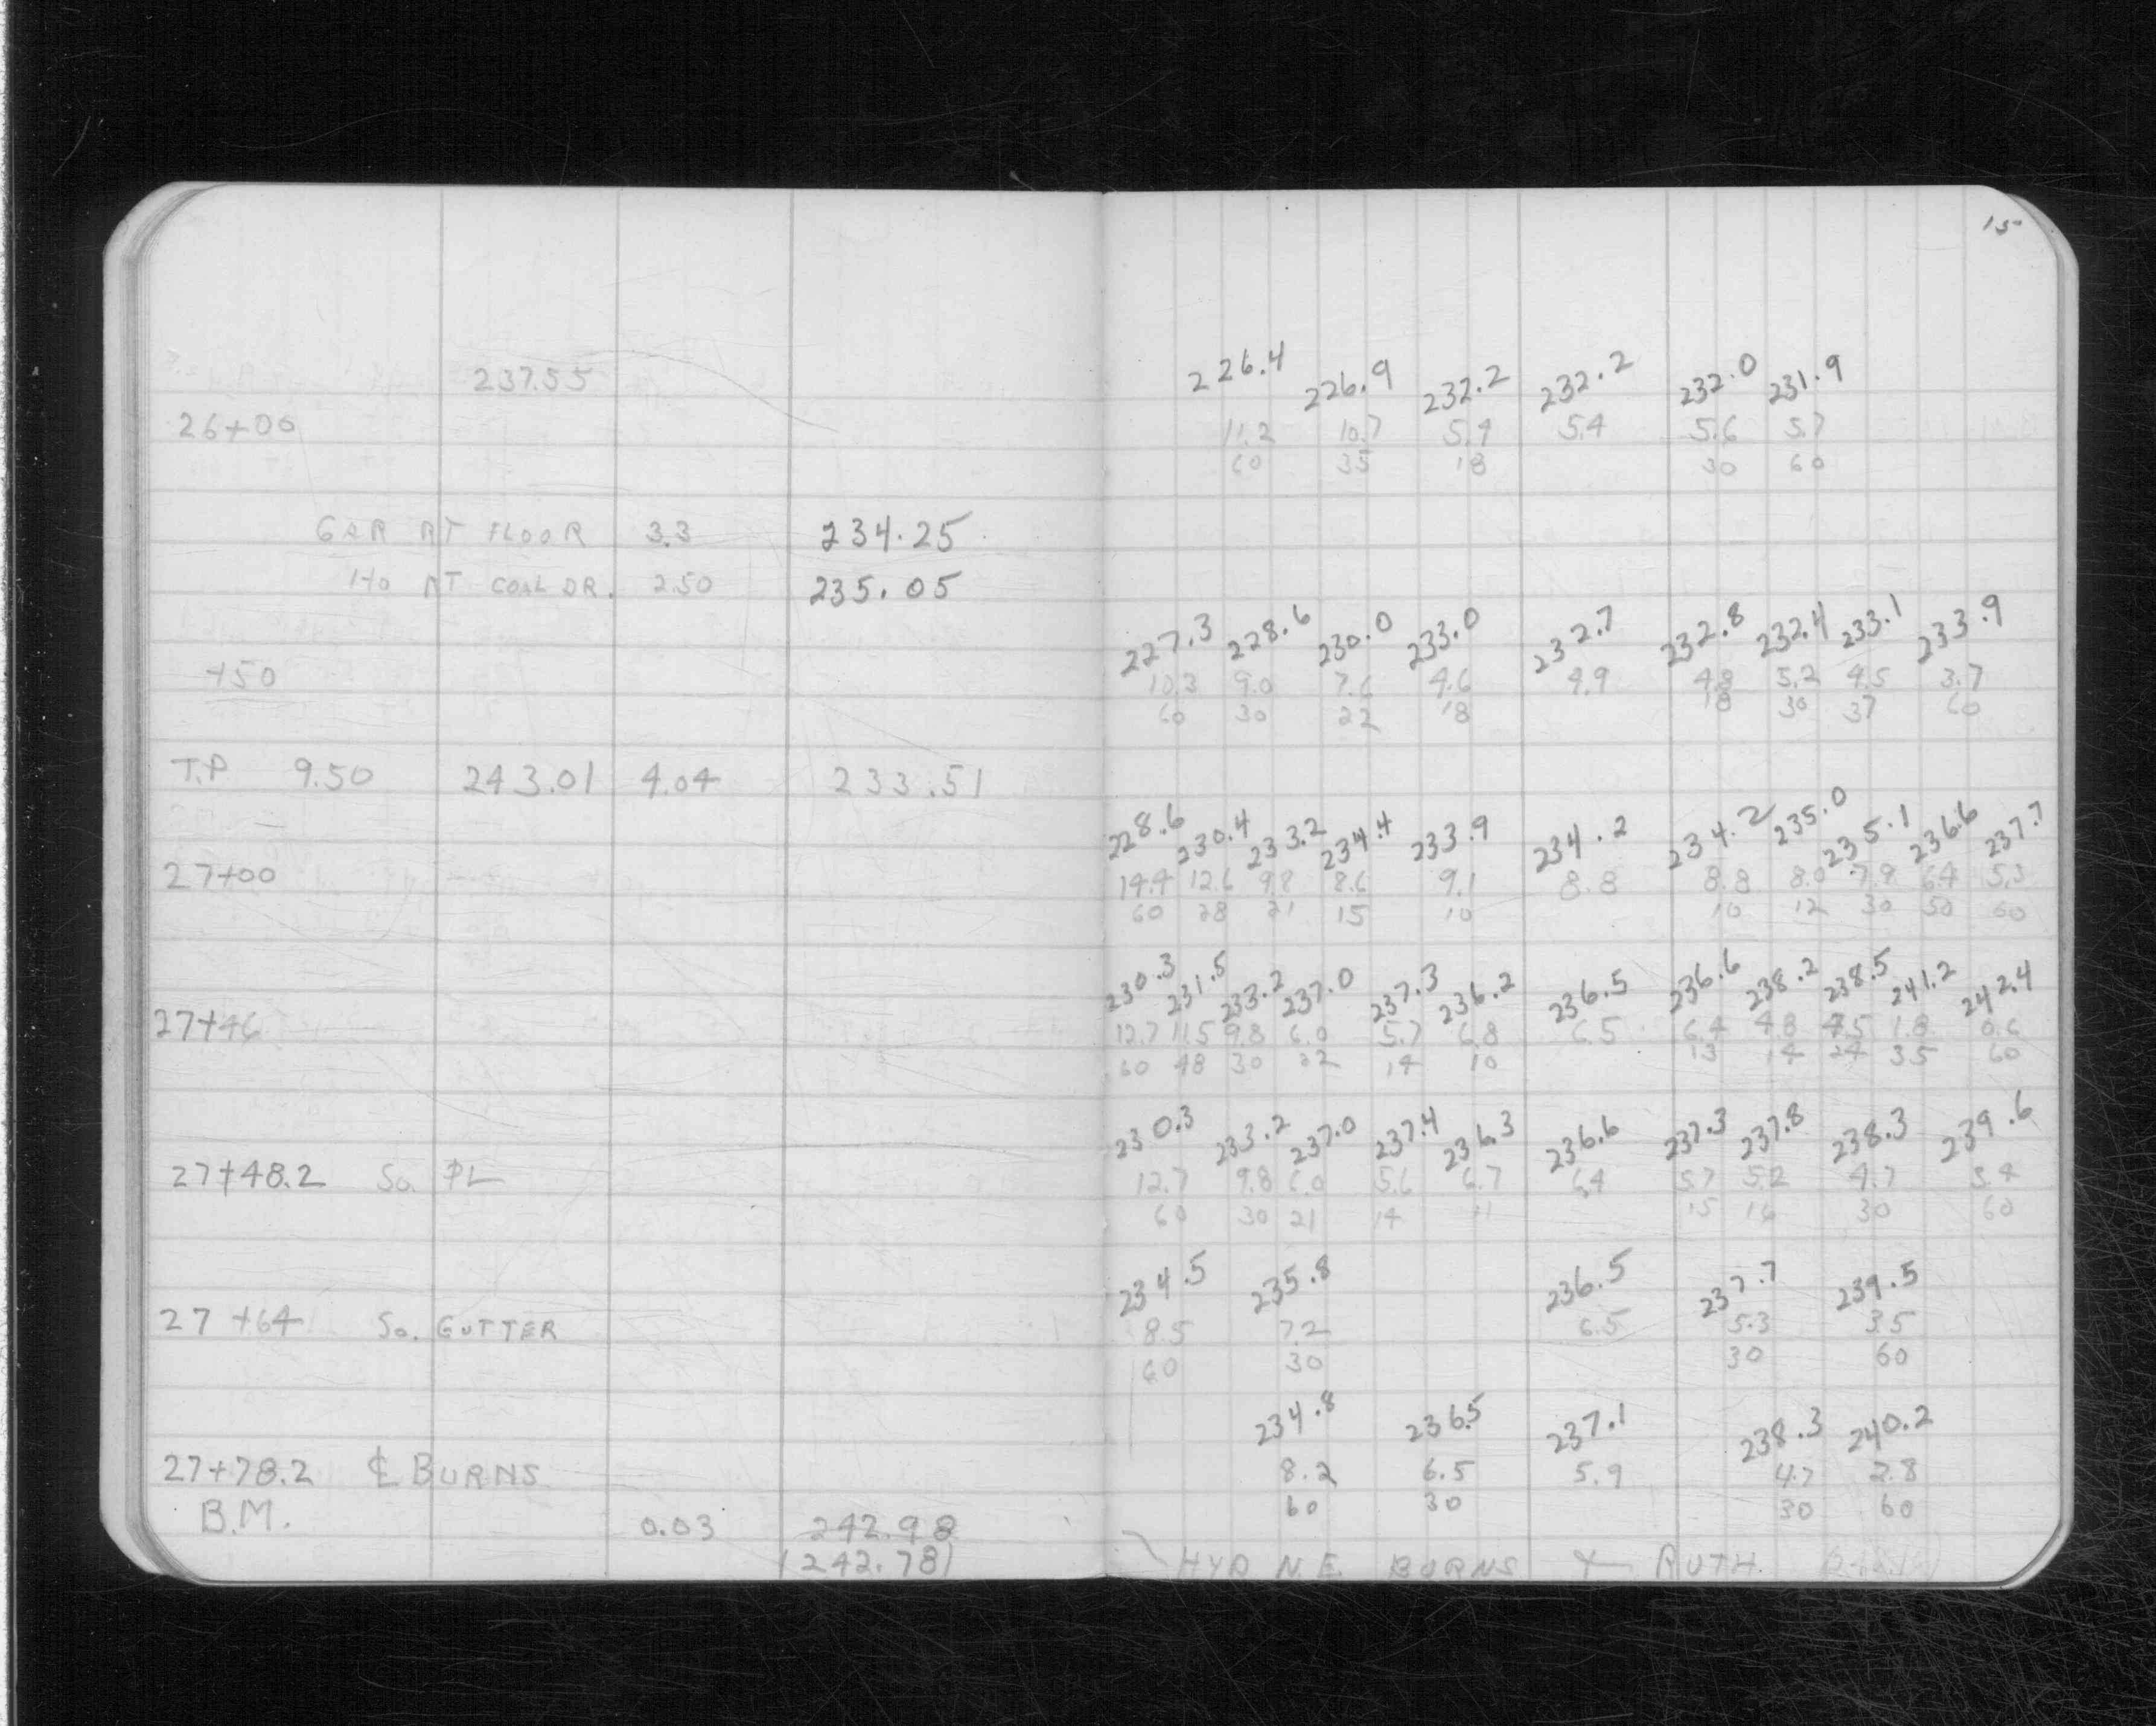 15
237.55 226.4 226.9 232.2 232.2 232.0 231.9
26+00 11.2 10.7 5.4 5.4 5.6 5.7
60 35 18 30 60
GAR RT FLOOR 3.3 234.25
Ho RT COAL DR. 2.50 235.05
227.3 228.6 230.0 233.0 232.7 232.8 232.4 233.1 233.9
+50 10.3 9.0 7.6 4.6 4.9 4.8 5.2 4.5 3.7
60 30 22 18 18 30 37 60
T.P 9.50 243.01 4.04 233.51
228.6 230.4 233.2 234.4 233.9 234.2 234.2 235.0 235.1 236.6 237.7
27+00 14.4 12.6 9.8 8.6 9.1 8.8 8.8 8.0 7.9 6.4 5.3
60 28 21 15 10 10 12 30 50 60
230.3 231.5 233.2 237.0 237.3 236.2 236.5 236.6 238.2 238.5 241.2 242.4
27+46 12.7 11.5 9.8 6.0 5.7 6.8 6.5 6.4 4.8 4.5 1.8 0.6
60 48 30 22 14 10 13 14 24 35 60
230.3 233.2 237.0 237.4 236.3 236.6 237.3 237.8 238.3 239.6
27+48.2 So. PL 12.7 9.8 6.0 5.6 6.7 6.4 5.7 5.2 4.7 3.4
60 30 21 14 11 15 16 30 60
234.5 235.8 236.5 237.7 239.5
27+64 So. GUTTER 8.5 7.2 6.5 5.3 3.5
60 30 30 60
234.8 236.5 237.1 238.3 240.2
27+78.2 ℄ BURNS 8.2 6.5 5.9 4.7 2.8
B.M. 60 30 30 60
0.03 242.98
(242.78) HYD N.E. BURNS & RUTH